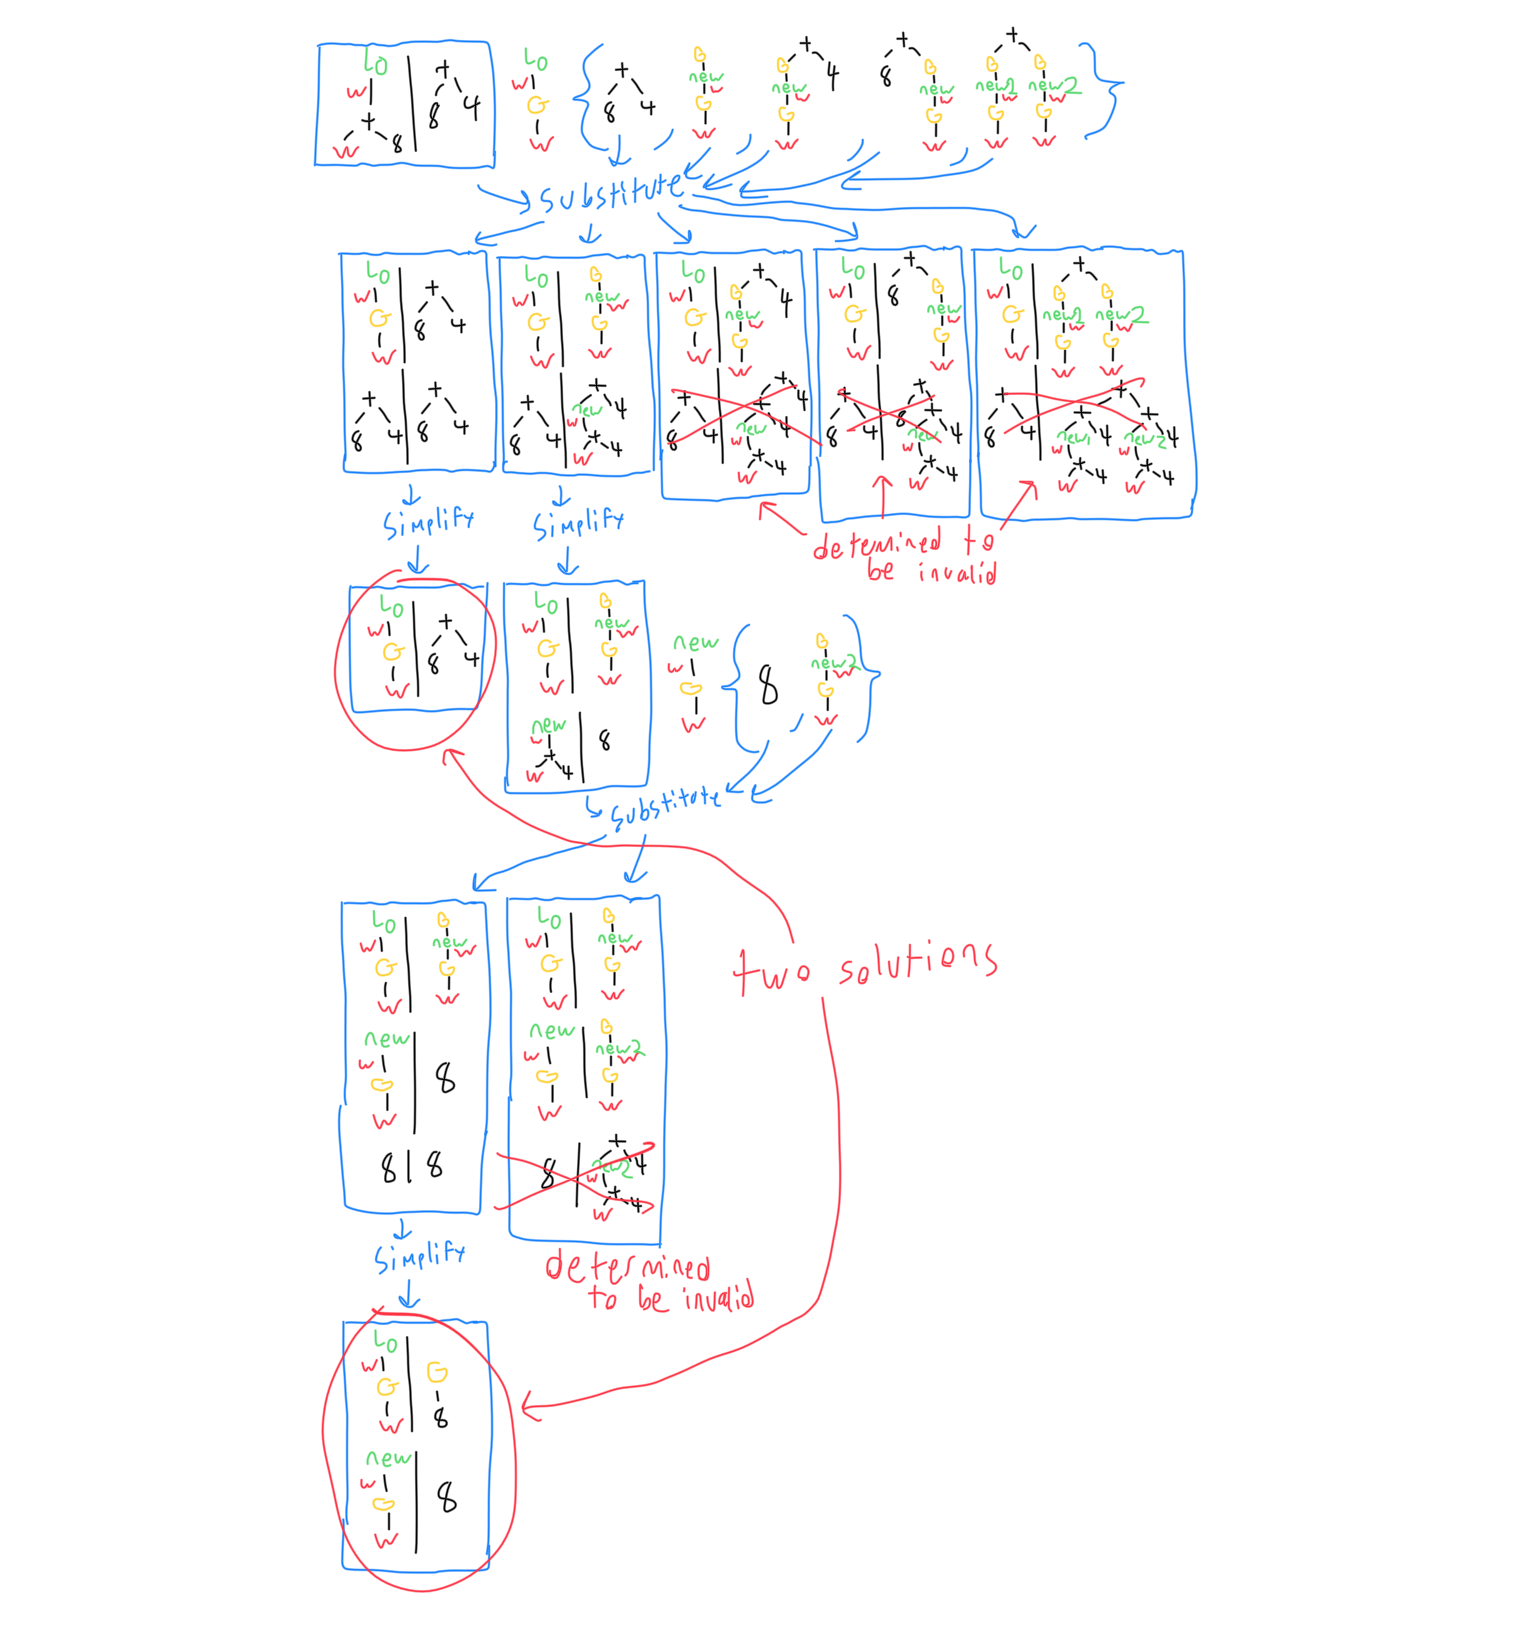 LO
w
+
w 8
+
8 4
LO
w
G
w
{
+
8 4
,
B
new
w
G
w
,
+
B 4
new
w
G
w
,
+
8 B
new
w
G
w
,
+
B B
new1 new2
w w
G G
w w
}
substitute
LO
w
G
w
+
8 4
+
8 4
+
8 4
LO
w
G
w
B
new
w
G
w
+
8 4
+
new 4
w
+
w 4
LO
w
G
w
+
B 4
new
w
G
w
+
8 4
+
+ 4
new 4
w
+
w 4
LO
w
G
w
+
8 B
new
w
G
w
+
8 4
+
8 +
new 4
w
+
w 4
LO
w
G
w
+
B B
new1 new2
w w
G G
w w
+
8 4
+
+ +
new1 4 new2 4
w w
+ +
w 4 w 4
simplify
simplify
determined to
be invalid
LO
w
G
w
+
8 4
LO
w
G
w
B
new
w
G
w
new
w
+
w 4
8
new
w
G
w
{
8
,
B
new2
w
G
w
}
substitute
LO
w
G
w
B
new
w
G
w
new
w
G
w
8
8 | 8
LO
w
G
w
B
new
w
G
w
new
w
G
w
B
new2
w
G
w
8
+
new2 4
w
+
w 4
two solutions
simplify
determined
to be invalid
LO
w
G
w
G
8
new
w
G
w
8